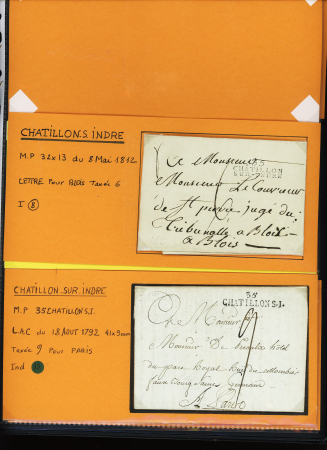 CHATILLON.S. INDRE
M.P 32x13 du 8 Mai 1812
LETTRE Pour BLOIS Taxée 6
I 8
A Monsieur
35
CHATILLON
SUR-INDRE
6
Monsieur Le Couvreur
de St pierre jugé du
Tribunalle a Blois
a Blois
CHATILLON SUR. INDRE
M.P 35CHATILLONS.I.
L.A.C du 18 AOUT 1792 41x9mm
Taxée 9 Pour PARIS
Ind
35
CHATILLON S.I.
9
A Monsieur
Monsieur De
hotel
du
Royal Rue du
faux bourg Saint germain
A Paris